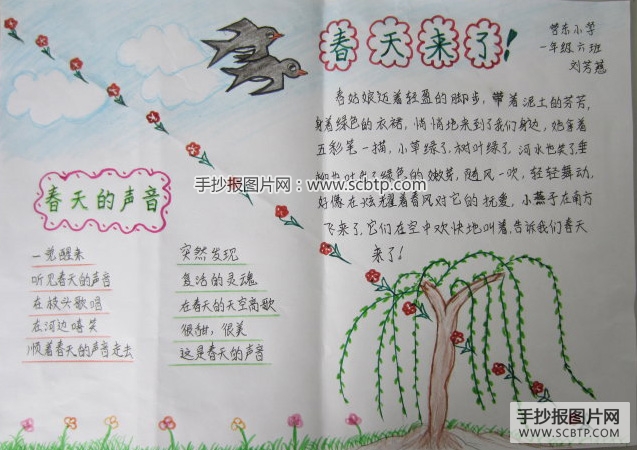 春天来了!
学东小学
一年级六班
刘芳慧
春姑娘迈着轻盈的脚步，带着泥土的芳芳，
身着绿色的衣裙，悄悄地来到了我们身边，她拿着
五彩笔一描，小草绿了，树叶绿了，河水也笑了垂
柳也吐出了绿色的嫩芽，随风一吹，轻轻舞动，
好像在炫耀着春风对它的抚爱，小燕子在南方
飞来了，它们在空中欢快地叫着，告诉我们春天
来了！
手抄报图片网：www.scbtp.com
春天的声音
一觉醒来
听见春天的声音
在枝头歌唱
在河边嘻笑
顺着春天的声音走去
突然发现
复活的灵魂
在春天的天空高歌
很甜，很美
这是春天的声音
手抄报图片网
WWW.SCBTP.COM